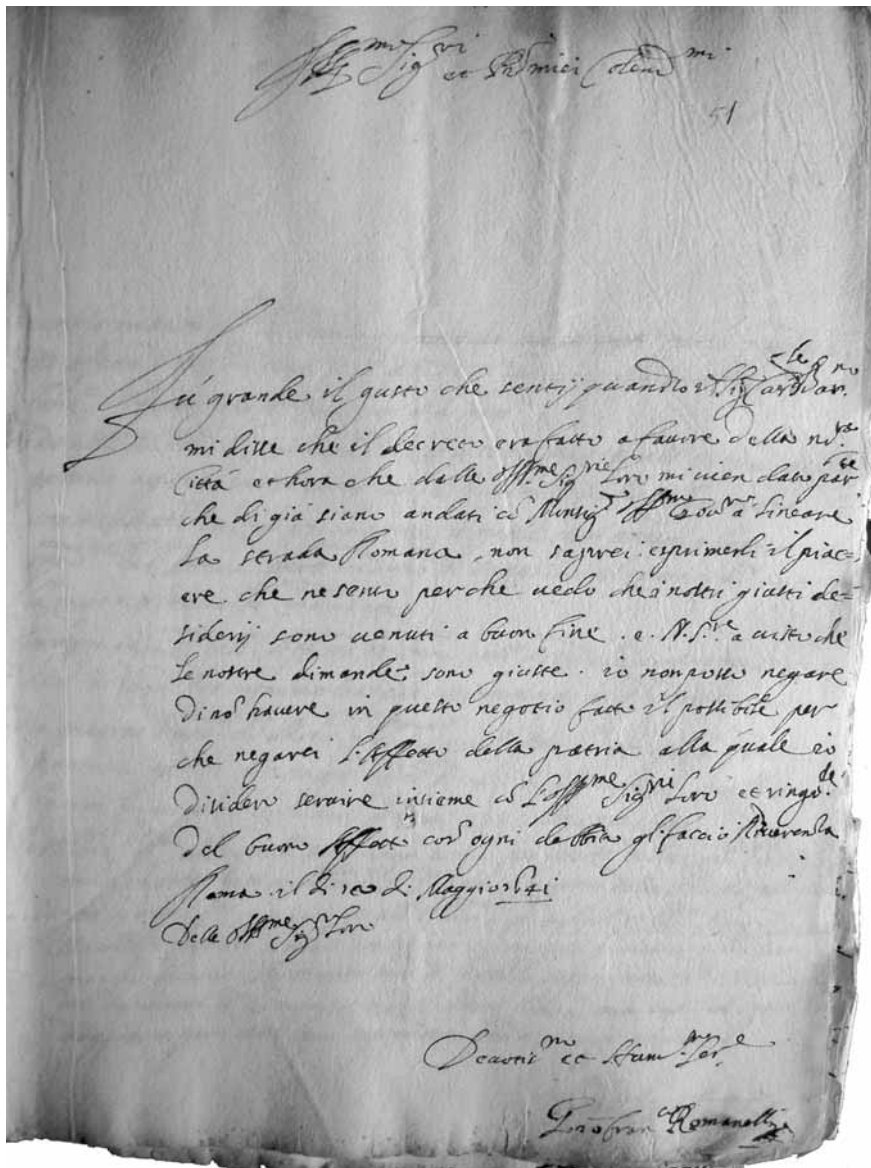 Ill.mi Sig.ri et Pñi miei Colend.mi
51
Fú grande il gusto che sentij quando il Sig.
mi disse che il decreto era fatto a favore della nr̃a
Città et hora che dalle Ill.me Sig.rie Loro mi vien dato parte
che di già siano andati cõ Monsig.r Ill.mo à lineare
la strada Romana, non saprei esprimerli il piac=
ere che ne sento perche vedo che i nostri giusti de=
siderij sono venuti a buon fine. e. N. S.re a visto che
le nostre dimande sono giuste. io non posso negare
di nõ havere in questo negotio fatto il possibile per
che negarei l'Affetto della patria alla quale io
disidero servire insieme cõ l'Ill.me Sig.rie Loro et
del buon Affetto con ogni debbita gli faccio Riverenza
Roma il di di Maggio 1641
Delle Ill.me Sig.rie Loro
Devotis.mo et Hum.mo Ser.e
Gio: Fran.co Romanelli